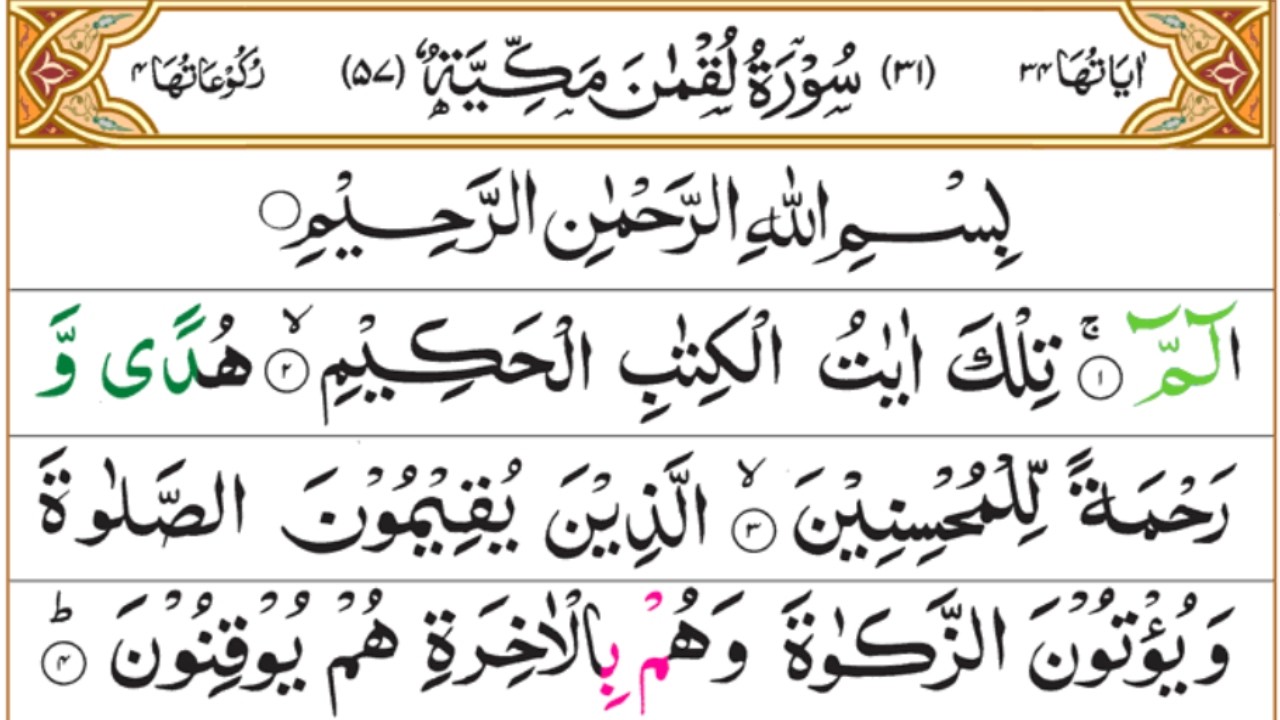 اٰيَاتُهَا ٣٤ (٣١) سُوْرَةُ لُقْمٰنَ مَكِّيَّةٌ (٥٧) رُكُوْعَاتُهَا ٤
بِسْمِ اللّٰهِ الرَّحْمٰنِ الرَّحِيْمِ ○
الٓمّٓ ۚ ١ تِلْكَ اٰيٰتُ الْكِتٰبِ الْحَكِيْمِ ۙ ٢ هُدًى وَّ
رَحْمَةً لِّلْمُحْسِنِيْنَ ۙ ٣ الَّذِيْنَ يُقِيْمُوْنَ الصَّلٰوةَ
وَيُؤْتُوْنَ الزَّكٰوةَ وَهُمْ بِالْاٰخِرَةِ هُمْ يُوْقِنُوْنَ ؕ ٤